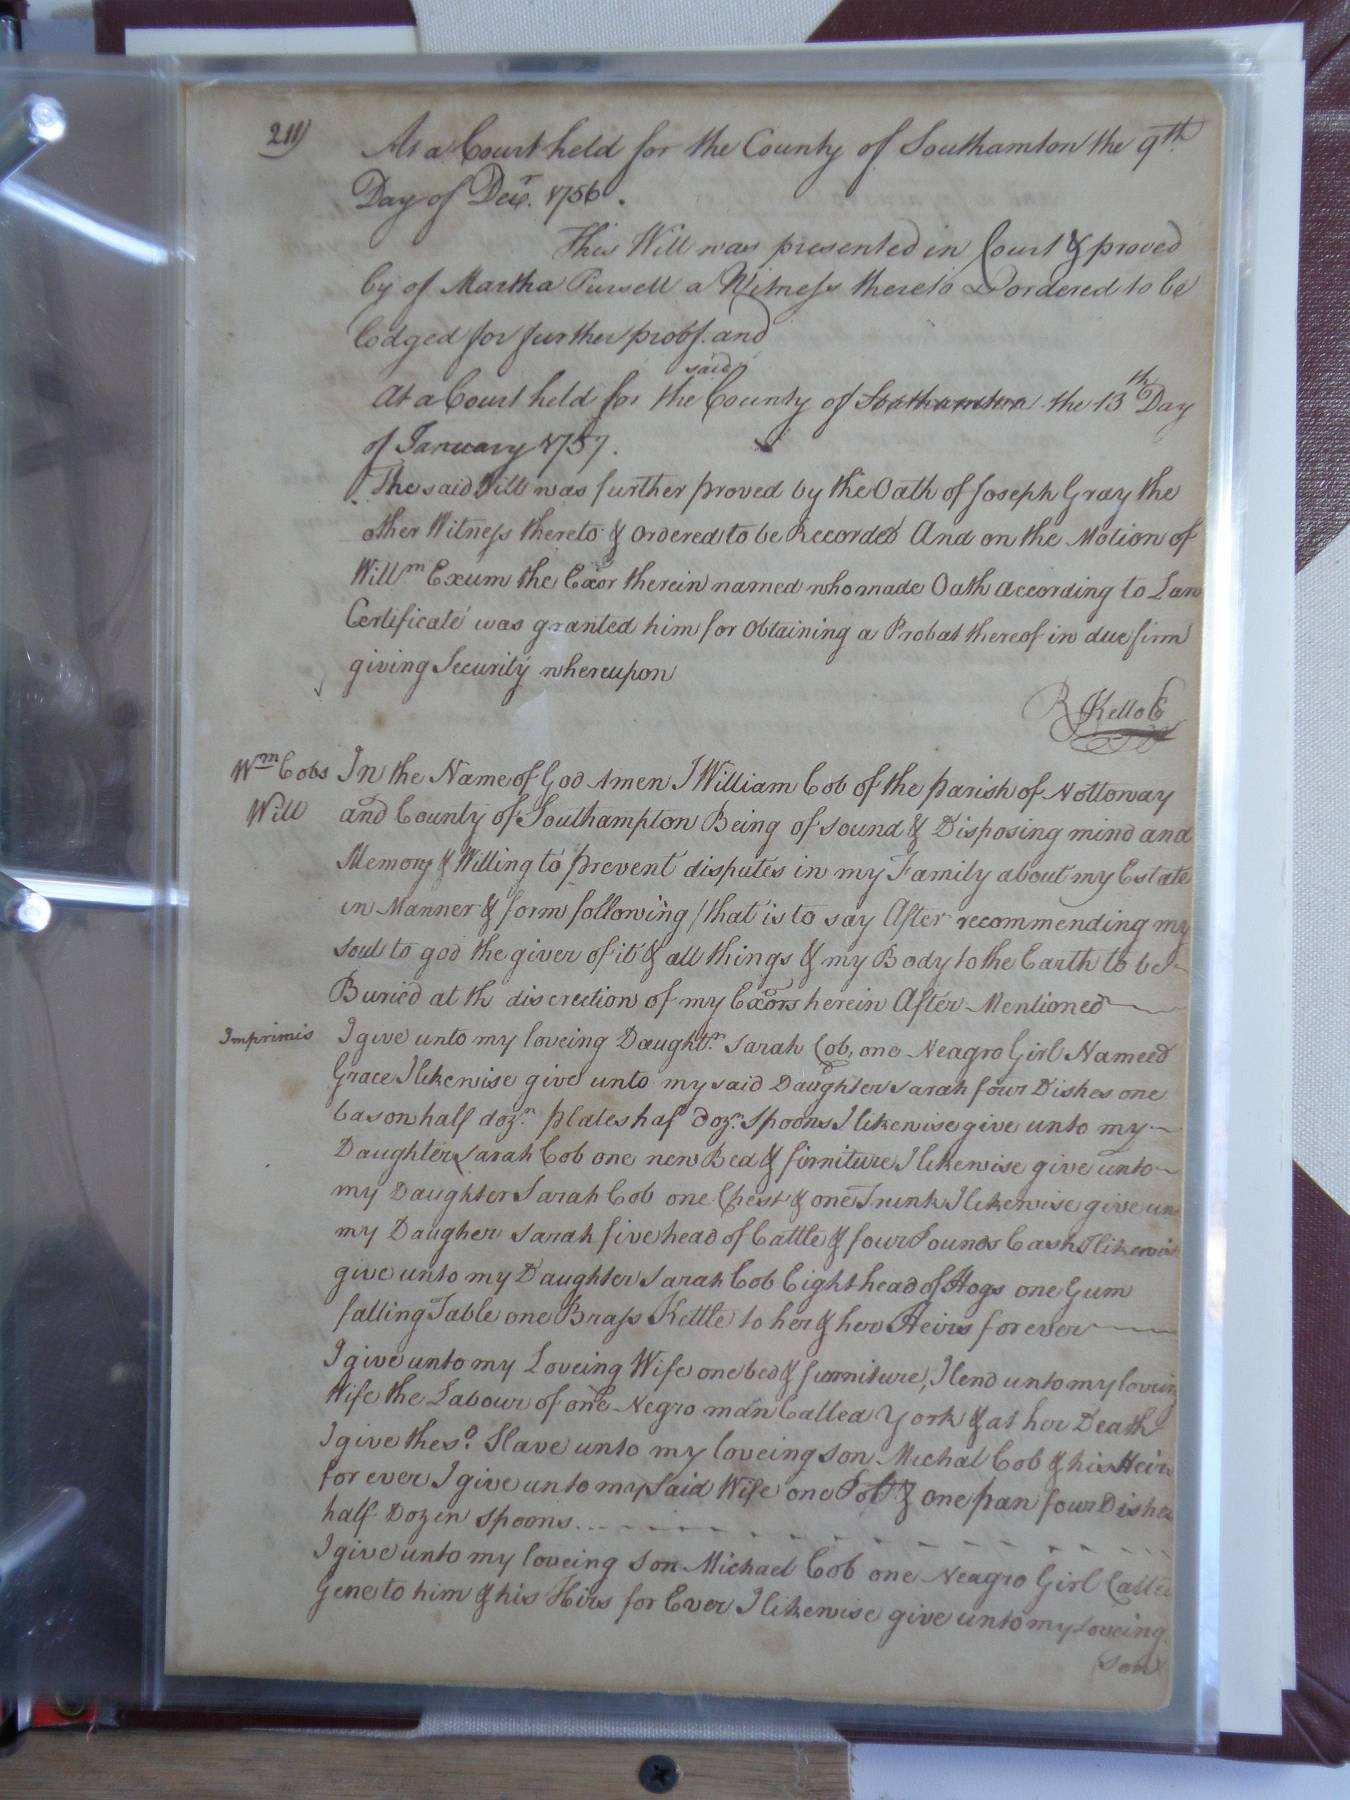 211)
At a Court held for the County of Southamton the 9th
Day of Decr. 1756.
This Will was presented in Court & proved
by of Martha Pursell a Witness thereto & ordered to be
lodged for further proof. and
At a Court held for the said County of Southamton the 13th Day
of January 1757.
The said Will was further proved by the Oath of Joseph Gray the
other Witness thereto & Ordered to be Recorded And on the Motion of
Willm Exum the Exor therein named who made Oath according to Law
Certificate was granted him for Obtaining a Probat thereof in due firm
giving Security whereupon
R Kello
Wm Cobs In the Name of God Amen I William Cob of the parish of Nottoway
Will and County of Southampton Being of sound & Disposing mind and
Memory & Willing to prevent disputes in my Family about my Estate
in Manner & form following / that is to say After recommending my
soul to god the giver of it & all things & my Body to the Earth to be
Buried at th discretion of my Exors herein After Mentioned
Imprimis I give unto my loveing Daughtr. Sarah Cob, one Neagro Girl Nameed
Grace I likewise give unto my said Daughter Sarah four Dishes one
bason half dozn. plates haf dozn. Spoons I likewise give unto my
Daughter Sarah Cob one new Bed & firniture I likewise give unto
my Daughter Sarah Cob one Chest & one Trunk I likewise give un
my Daugher Sarah five head of Cattle & four Pounds Cash I likewis
give unto my Daughter Sarah Cob Eight head of Hogs one Gum
falling Table one Brass Kettle to her & her Heirs for ever
I give unto my Loveing Wife one bed & furniture, I lend unto my lovein
Wife the Labour of one Negro man Called York & at her Death
I give the sd. Slave unto my loveing son Michal Cob & his Heirs
for ever I give unto my Said Wife one Pott & one pan four Dishes
half Dozen spoons
I give unto my loveing son Michael Cob one Neagro Girl Called
Gene to him & his Hirs for Ever I likewise give unto my Loveing
Son